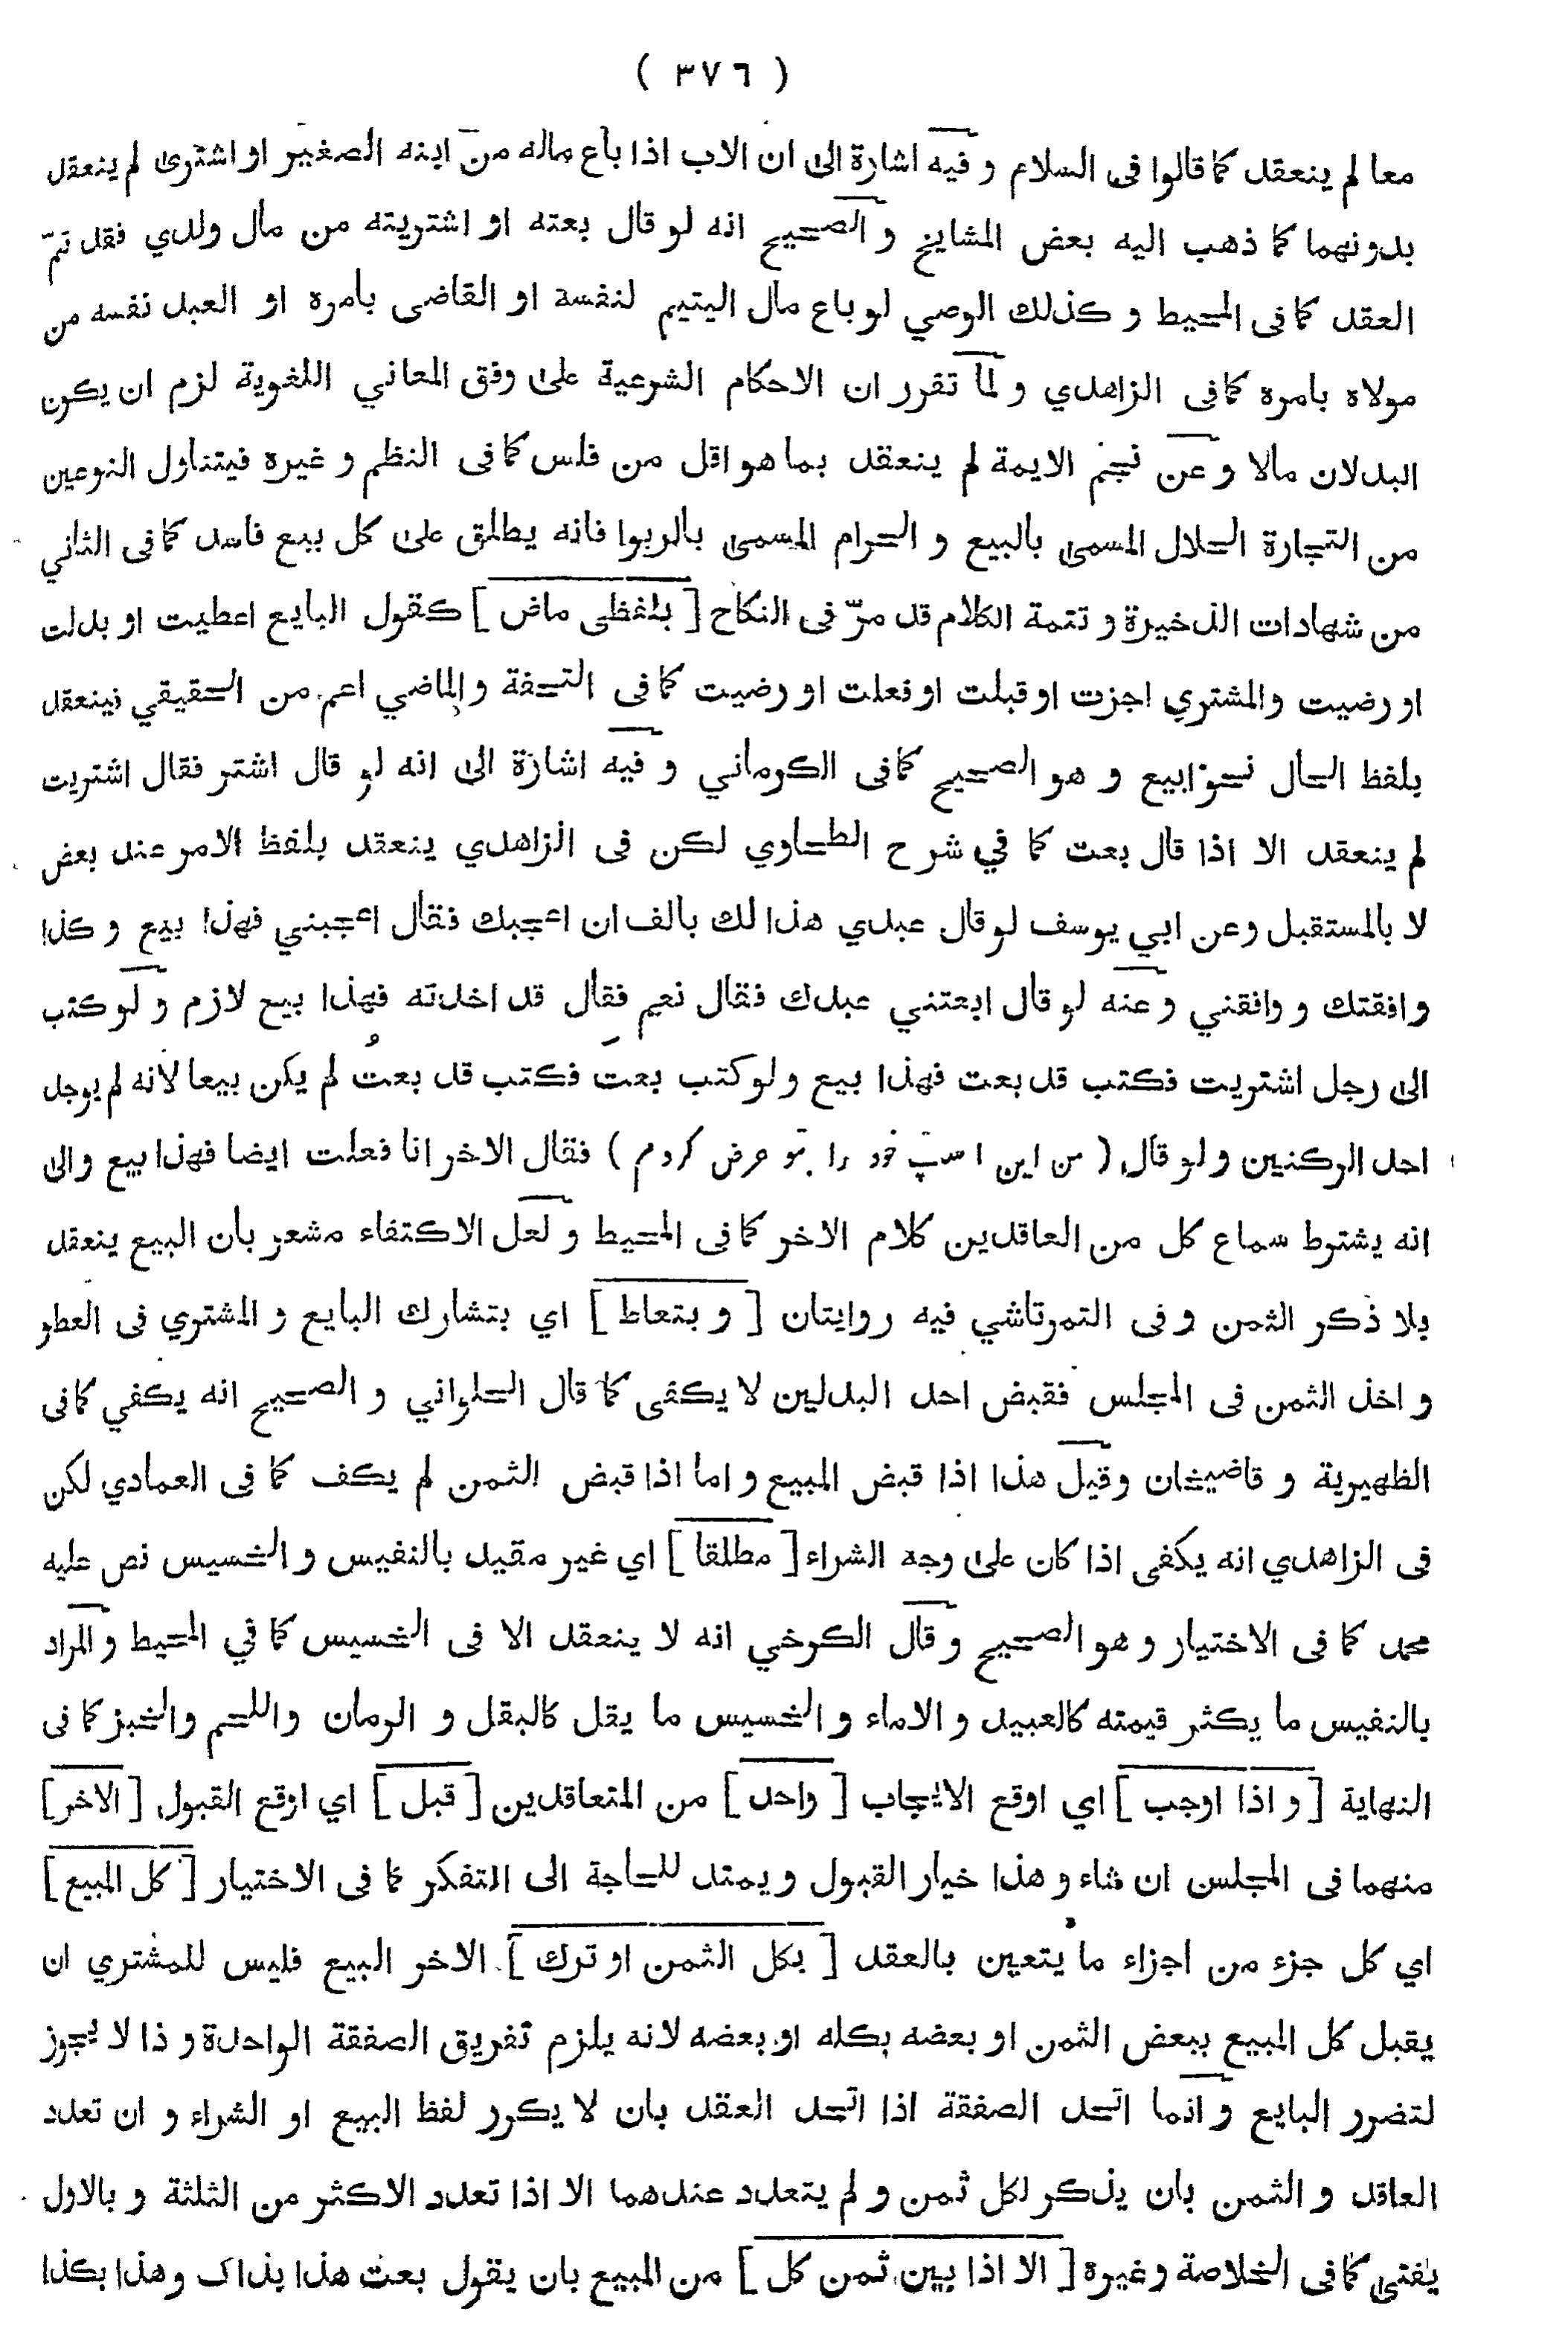 ( ٣٧٦ )
معا لم ينعقد كما قالوا فى السلام و فيه اشارة الى ان الاب اذا باع ماله من ابنه الصغير او اشترى لم ينعقد
بدونهما كما ذهب اليه بعض المشايخ و الصحيح انه لو قال بعته او اشتريته من مال ولدي فقد تمّ
العقد كما فى المحيط و كذلك الوصي لو باع مال اليتيم لنفسه او القاضى بامره او العبد نفسه من
مولاه بامره كما فى الزاهدي و لما تقرر ان الاحكام الشرعية على وفق المعاني اللغوية لزم ان يكون
البدلان مالا و عن نجم الايمة لم ينعقد بما هو اقل من فلس كما فى النظم و غيره فيتناول النوعين
من التجارة الحلال المسمى بالبيع و الحرام المسمى بالربوا فانه يطلق على كل بيع فاسد كما فى الثاني
من شهادات الذخيرة و تتمة الكلام قد مرّ فى النكاح [ بلفظى ماض ] كقول البايع اعطيت او بدلت
او رضيت والمشتري اجزت او قبلت او فعلت او رضيت كما فى التحفة والماضي اعم من الحقيقي فينعقد
بلفظ الحال نحو ابيع و هو الصحيح كما فى الكرماني و فيه اشارة الى انه لو قال اشتر فقال اشتريت
لم ينعقد الا اذا قال بعت كما في شرح الطحاوي لكن فى الزاهدي ينعقد بلفظ الامر عند بعض
لا بالمستقبل وعن ابي يوسف لو قال عبدي هذا لك بالف ان اعجبك فقال اعجبني فهذا بيع و كذا
وافقتك و وافقني و عنه لو قال ابعتني عبدك فقال نعم فقال قد اخذته فهذا بيع لازم و لو كتب
الى رجل اشتريت فكتب قد بعت فهذا بيع ولو كتب بعت فكتب قد بعت لم يكن بيعا لانه لم يوجد
احد الركنين و لو قال ( من اين اسپ خود را بتو عرض كردم ) فقال الاخر انا فعلت ايضا فهذا بيع والى
انه يشترط سماع كل من العاقدين كلام الاخر كما فى المحيط و لعل الاكتفاء مشعر بان البيع ينعقد
بلا ذكر الثمن و فى التمرتاشي فيه روايتان [ و بتعاط ] اي بتشارك البايع و المشتري فى العطو
و اخذ الثمن فى المجلس فقبض احد البدلين لا يكفى كما قال الحلواني و الصحيح انه يكفي كما فى
الظهيرية و قاضيخان وقيل هذا اذا قبض المبيع و اما اذا قبض الثمن لم يكف كما فى العمادي لكن
فى الزاهدي انه يكفى اذا كان على وجه الشراء [ مطلقا ] اي غير مقيد بالنفيس و الخسيس نص عليه
محمد كما فى الاختيار و هو الصحيح و قال الكرخي انه لا ينعقد الا فى الخسيس كما في المحيط و المراد
بالنفيس ما يكثر قيمته كالعبيد و الاماء و الخسيس ما يقل كالبقل و الرمان واللحم والخبز كما فى
النهاية [ و اذا اوجب ] اي اوقع الايجاب [ واحد ] من المتعاقدين [ قبل ] اي اوقع القبول [ الاخر ]
منهما فى المجلس ان شاء و هذا خيار القبول و يمتد للحاجة الى التفكر كما فى الاختيار [ كل المبيع ]
اي كل جزء من اجزاء ما يتعين بالعقد [ بكل الثمن او ترك ] الاخر البيع فليس للمشتري ان
يقبل كل المبيع ببعض الثمن او بعضه بكله او بعضه لانه يلزم تفريق الصفقة الواحدة و ذا لا يجوز
لتضرر البايع و انما اتحد الصفقة اذا اتحد العقد بان لا يكرر لفظ البيع او الشراء و ان تعدد
العاقد و الثمن بان يذكر لكل ثمن و لم يتعدد عندهما الا اذا تعدد الاكثر من الثلثة و بالاول
يفتى كما فى الخلاصة وغيره [ الا اذا بين ثمن كل ] من المبيع بان يقول بعت هذا بذاك وهذا بكذا